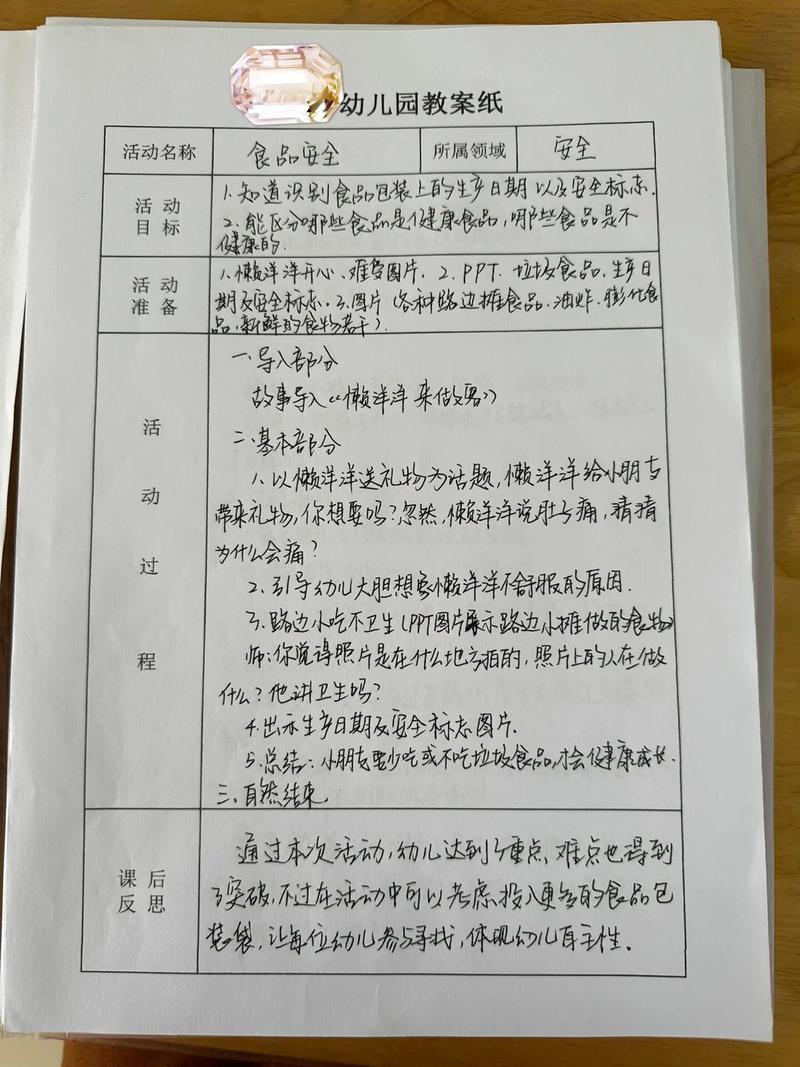 幼儿园教案纸
活动名称 食品安全 所属领域 安全
活动目标
1.知道识别食品包装上的生产日期以及安全标志.
2.能区分哪些食品是健康食品,哪些食品是不
健康的.
活动准备
1.懒洋洋开心、难受图片. 2.PPT.垃圾食品.生产日
期及安全标志. 3.图片(各种路边摊食品.油炸.膨化食
品.新鲜的食物若干).
活动过程
一.导入部分
故事导入《懒洋洋来做客》
二.基本部分
1.以懒洋洋送礼物为话题,懒洋洋给小朋友
带来礼物,你想要吗?忽然,懒洋洋说肚子痛,猜猜
为什么会痛?
2.引导幼儿大胆想象懒洋洋不舒服的原因.
3.路边小吃不卫生(PPT图片展示路边小摊做的食物)
师:你觉得照片是在什么地方拍的,照片上的人在做
什么?他讲卫生吗?
4.出示生产日期及安全标志图片.
5.总结:小朋友要少吃或不吃垃圾食品,才会健康成长.
三.自然结束
课后反思
通过本次活动,幼儿达到了重点,难点也得到
了突破,不过在活动中可以考虑投入更多的食品包
装袋,让每位幼儿参与寻找,体现幼儿自主性.